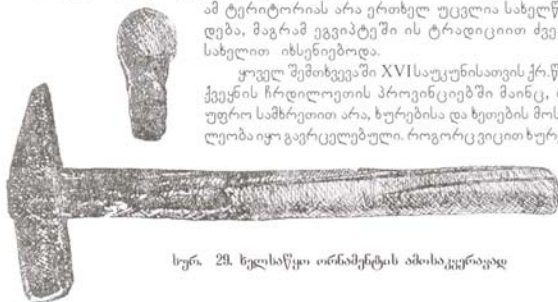 ამ ტერიტორიას არა ერთხელ უცვლია სახელწ
დება, მაგრამ ეგვიპტეში ის ტრადიციით ძვე
სახელით იხსენიებოდა.
ყოველ შემთხვევაში XVI საუკუნისათვის ქრ.წ
ქვეყნის ჩრდილოეთის პროვინციებში მაინც,
უფრო სამხრეთით არა, ხურებისა და ხეთების მოს
ლეობა იყო გავრცელებული. როგორც ვიცით ხურ
სურ. 29. ხელსაწყო ორნამენტის ამოსაკვერავად